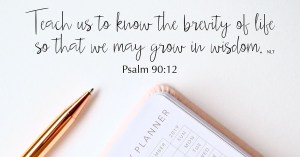 Teach us to know the brevity of life
so that we may grow in wisdom. NLT
Psalm 90:12
PLANNER